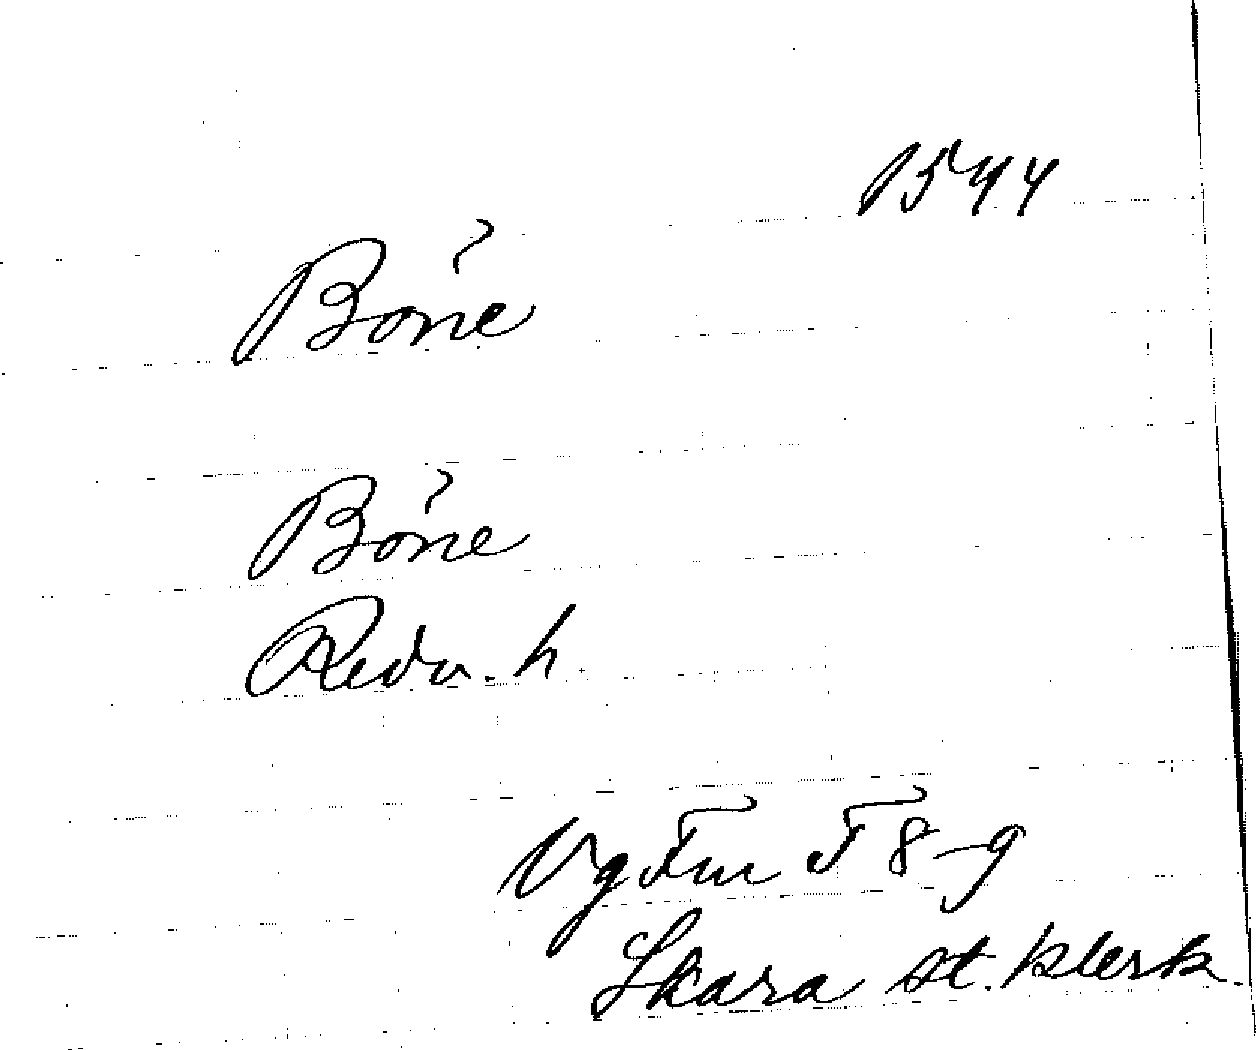 1544
Bone
Bone
Redv. h.
Vg F 8-9
Skara st. klerk.